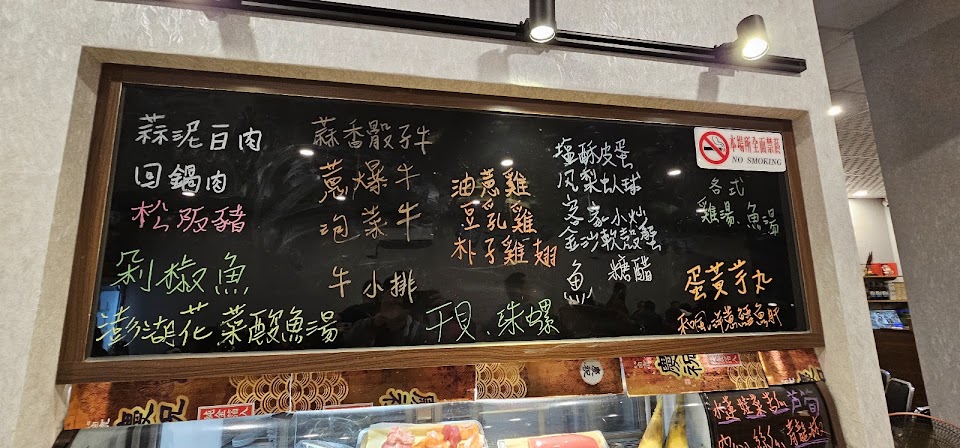 蒜泥白肉
回鍋肉
松阪豬
剁椒魚
澎湖花菜酸魚湯
蒜香骰子牛
蔥爆牛
泡菜牛
牛小排
油蔥雞
豆乳雞
朴子雞翅
干貝、珠螺
塩酥皮蛋
鳳梨虾球
客家小炒
金沙軟殼蟹
魚 糖醋
本場所全面禁菸
NO SMOKING
各式
雞湯、魚湯
蛋黃芋丸
和風洋蔥鱈魚肝
慶祝